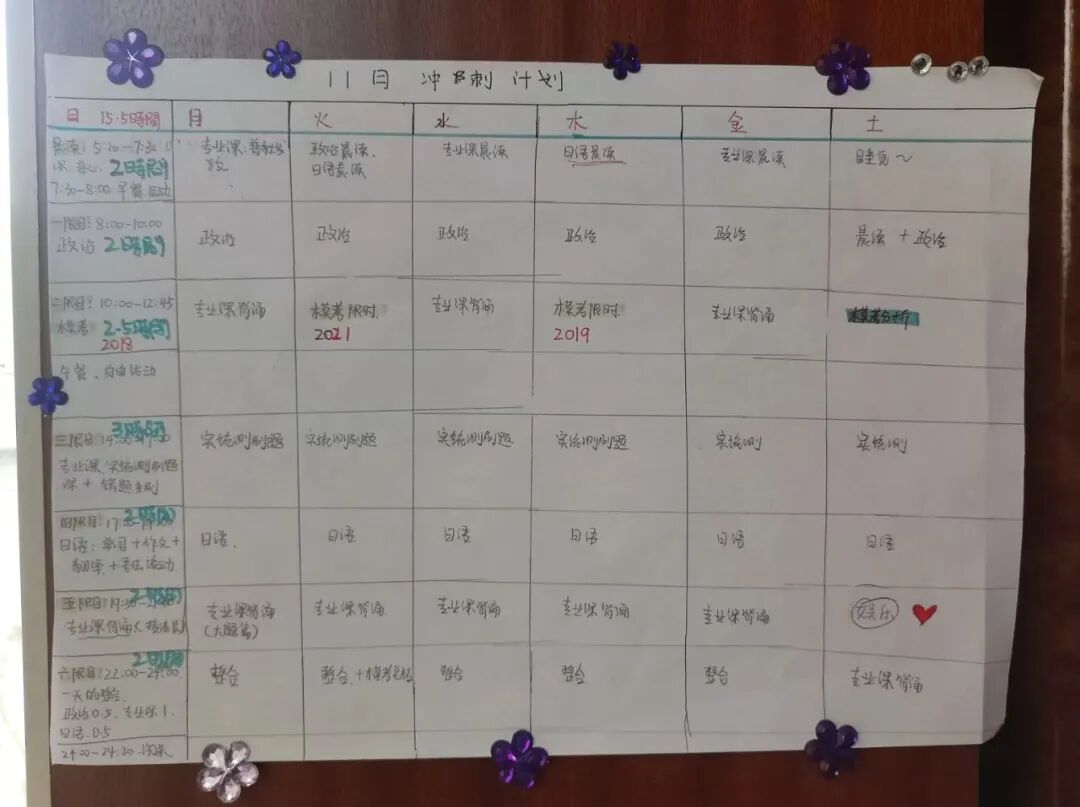 11月 冲刺计划
日 15.5時間 月 火 水 木 金 土
晨读: 5:30-7:30 专业课: 政治晨读、 专业课晨读 日语晨读 专业课晨读 睡觉~
2時間 政 日语晨读
7:30-8:00 早餐
一限目: 8:00-10:00
政治 2時間 政治 政治 政治 政治 政治 晨读 + 政治
二限目: 10:00-12:45 专业课背诵 模考限时 专业课背诵 模考限时 专业课背诵 模考分析
模考 2.5時間 2021 2019
2018
午餐、自由活动
3時間
三限目: 实统测刷题 实统测刷题 实统测刷题 实统测刷题 实统测 实统测
专业课、实统测刷题
课+错题重刷
四限目: 17:00-
日语: 单词+作文+ 日语、 日语 日语 日语 日语 日语
翻译+
五限目: 19:30- 专业课背诵 专业课背诵 专业课背诵 专业课背诵 专业课背诵 娱乐
专业课背诵 (大题篇)
六限目: 22:00-24:00 整合 整合、+模考总结 整合 整合 整合 专业课背诵
一天的整合、
政治0.5、专业课1、
日语0.5
24:00-24:20 洗漱